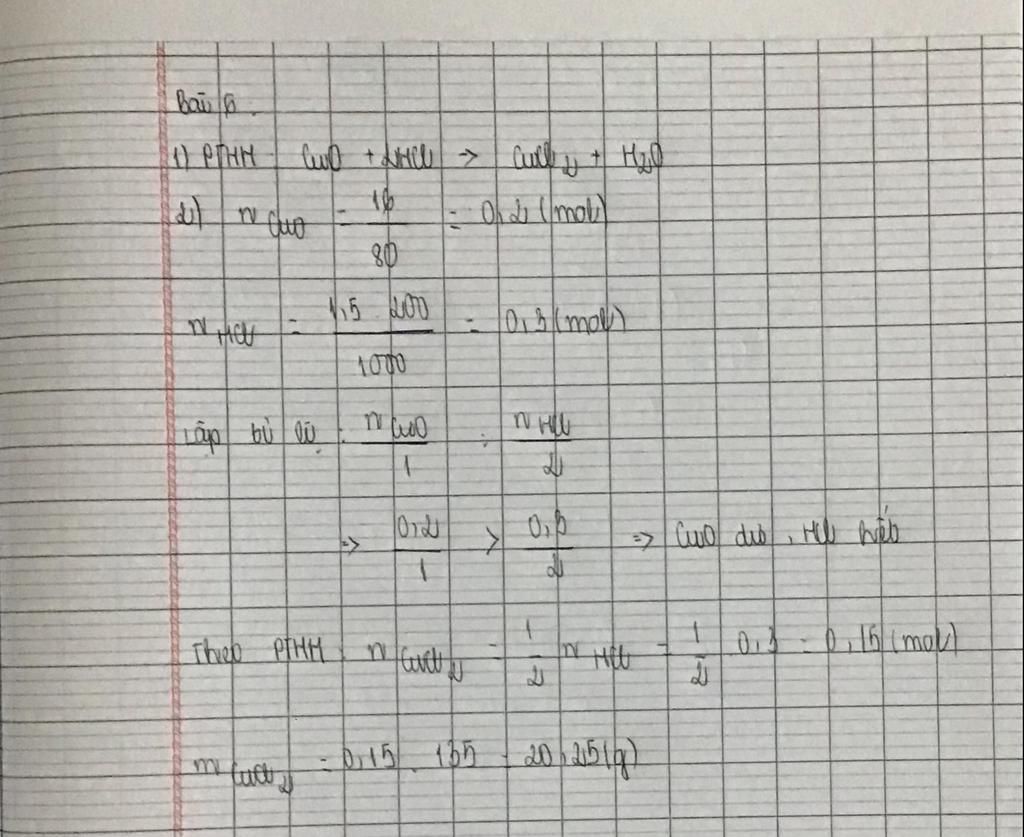 Bài 5.
1) PTHH CuO + 2HCl → CuCl₂ + H₂O
2) n CuO = 16/80 = 0,2 (mol)
n HCl = 1,5 . 200/1000 = 0,3 (mol)
Lập tỉ lệ : n CuO/1 : n HCl/2
=> 0,2/1 > 0,3/2 => CuO dư, HCl hết
Theo PTHH n CuCl₂ = 1/2 n HCl = 1/2 0,3 = 0,15 (mol)
m CuCl₂ = 0,15 . 135 = 20,25 (g)